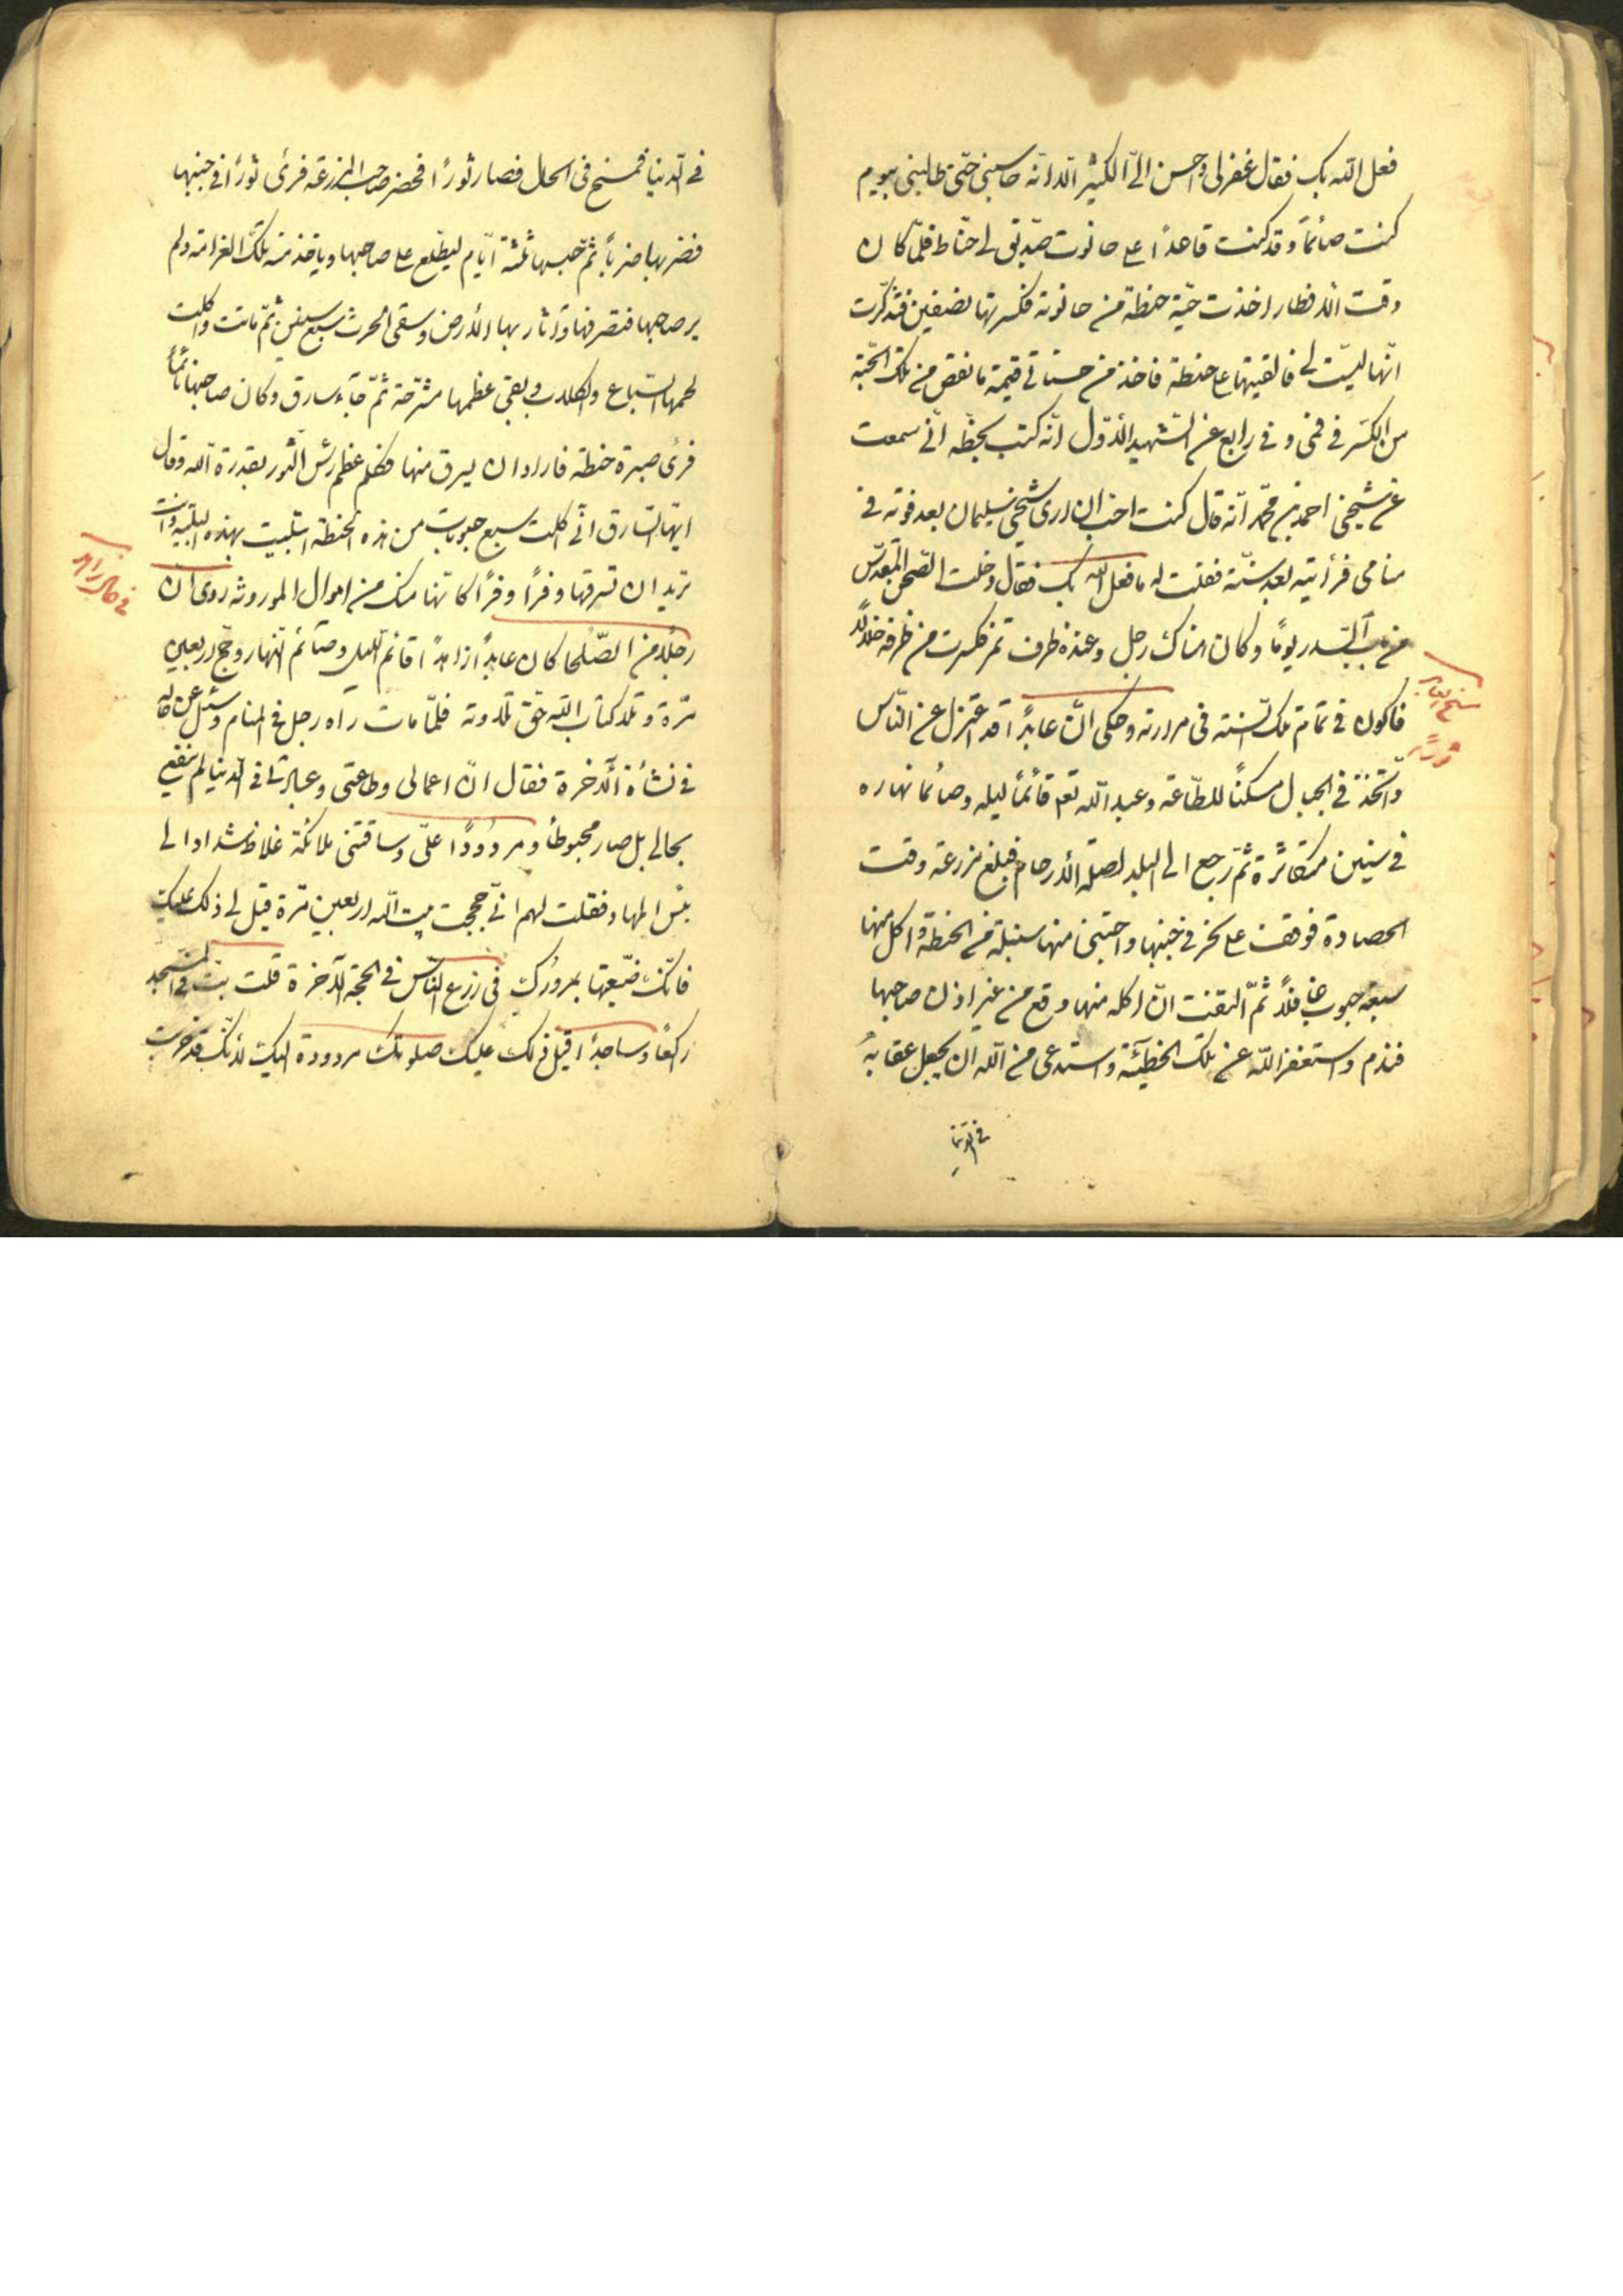 فعل الله بک فقال غفر لی واحسن الیّ الکثیر الّا انّه حاسبنی حتّی طالبنی بیوم
کنت صائماً وقد کنت قاعداً علی حانوت صدیق لی حنّاط فلمّا کان
وقت الافطار اخذت حبّة حنطة من حانوته فکسرتها نصفین فتذکّرت
انّها لیست لی فالقیتها علی حنطة فاخذ من حسناتی قیمة ما نقص من تلک الحبّة
من الکسر فی فمی و فی رابع عن الشهید الاوّل انّه کتب بخطّه انّی سمعت
عن شیخی احمد بن محمّد انّه قال کنت احبّ ان اری شیخی سلیمان بعد فوته فی
منامی فرأیته بعد سنة فقلت له ما فعل الله بک فقال دخلت الصّحن المقدّس
من باب السّدر یوماً وکان هناک رجل وعنده ظرف تمر فکسرت من ظرفه خلالاً
فاکون فی تمام تلک السّنة فی مرارته وحکی انّ عابداً قد اعتزل عن النّاس
واتّخذ فی الجبال مسکناً للطّاعة وعبد الله تعم قائماً لیله وصائماً نهاره
فی سنین متکاثرة ثمّ رجع الی البلد لصلة الارحام فبلغ مزرعة وقت
الحصادة فوقف علی فی جنبها واجتنی منها سنبلة من الحنطة واکل منها
سبعة حبوب غافلاً ثمّ التفت انّ اکله منها وقع من غیر اذن صاحبها
فندم واستغفر الله عن تلک الخطیئة واستدعی من الله ان یجعل عقابه
فی الدّنیا
فی الدّنیا فمسخ فی الحال فصار ثوراً فحضر صاحب المزرعة فرئی ثوراً فی جنبها
فضربها ضرباً ثمّ حبسها ثلثة ایّام لیطّلع علی صاحبها ویاخذ منه تلک الغرامة ولم
یر صاحبها فتصرّفها واثار بها الارض وسقی الحرث سبع سنین ثمّ ماتت واکلت
لحمها السّباع والکلاب وبقی عظمها مشرّحة ثمّ جاء سارق وکان صاحبها نائماً
فرئی صبرة حنطة فاراد ان یسرق منها فتکلّم عظم رئس الثّور بقدرة الله وقال
ایّها السّارق انّی اکلت سبع حبوبات من هذه الحنطة ابتلیت بهذه البلیّة وانت
ترید ان تسرقها وفراً وفراً کانّها منک من اموال الموروثه روی انّ
رجلاً من الصّلحا کان عابداً زاهداً قائم اللیل وصائم النّهار وحجّ اربعین
مرّة وتلا کتاب الله حقّ تلاوته فلمّا مات راه رجل فی المنام وسئل عن حاله
فی نشأة الآخرة فقال انّ اعمالی وطاعتی وعبادتی فی الدّنیا لم تنفع
بحالی بل صار محبوطاً ومردوداً علیّ وساقتنی ملائکة غلاظ شداد الی
بئس المهاد فقلت لهم انّی حججت بیت الله اربعین مرّة قیل لی ذلک علیک
فانّک ضیّعتها بمرورک فی زرع النّاس فی الحجّة الآخرة قلت بتّ فی المسجد
راکعاً وساجداً قیل ذلک علیک صلوتک مردودة الیک لانّک قد خرجت